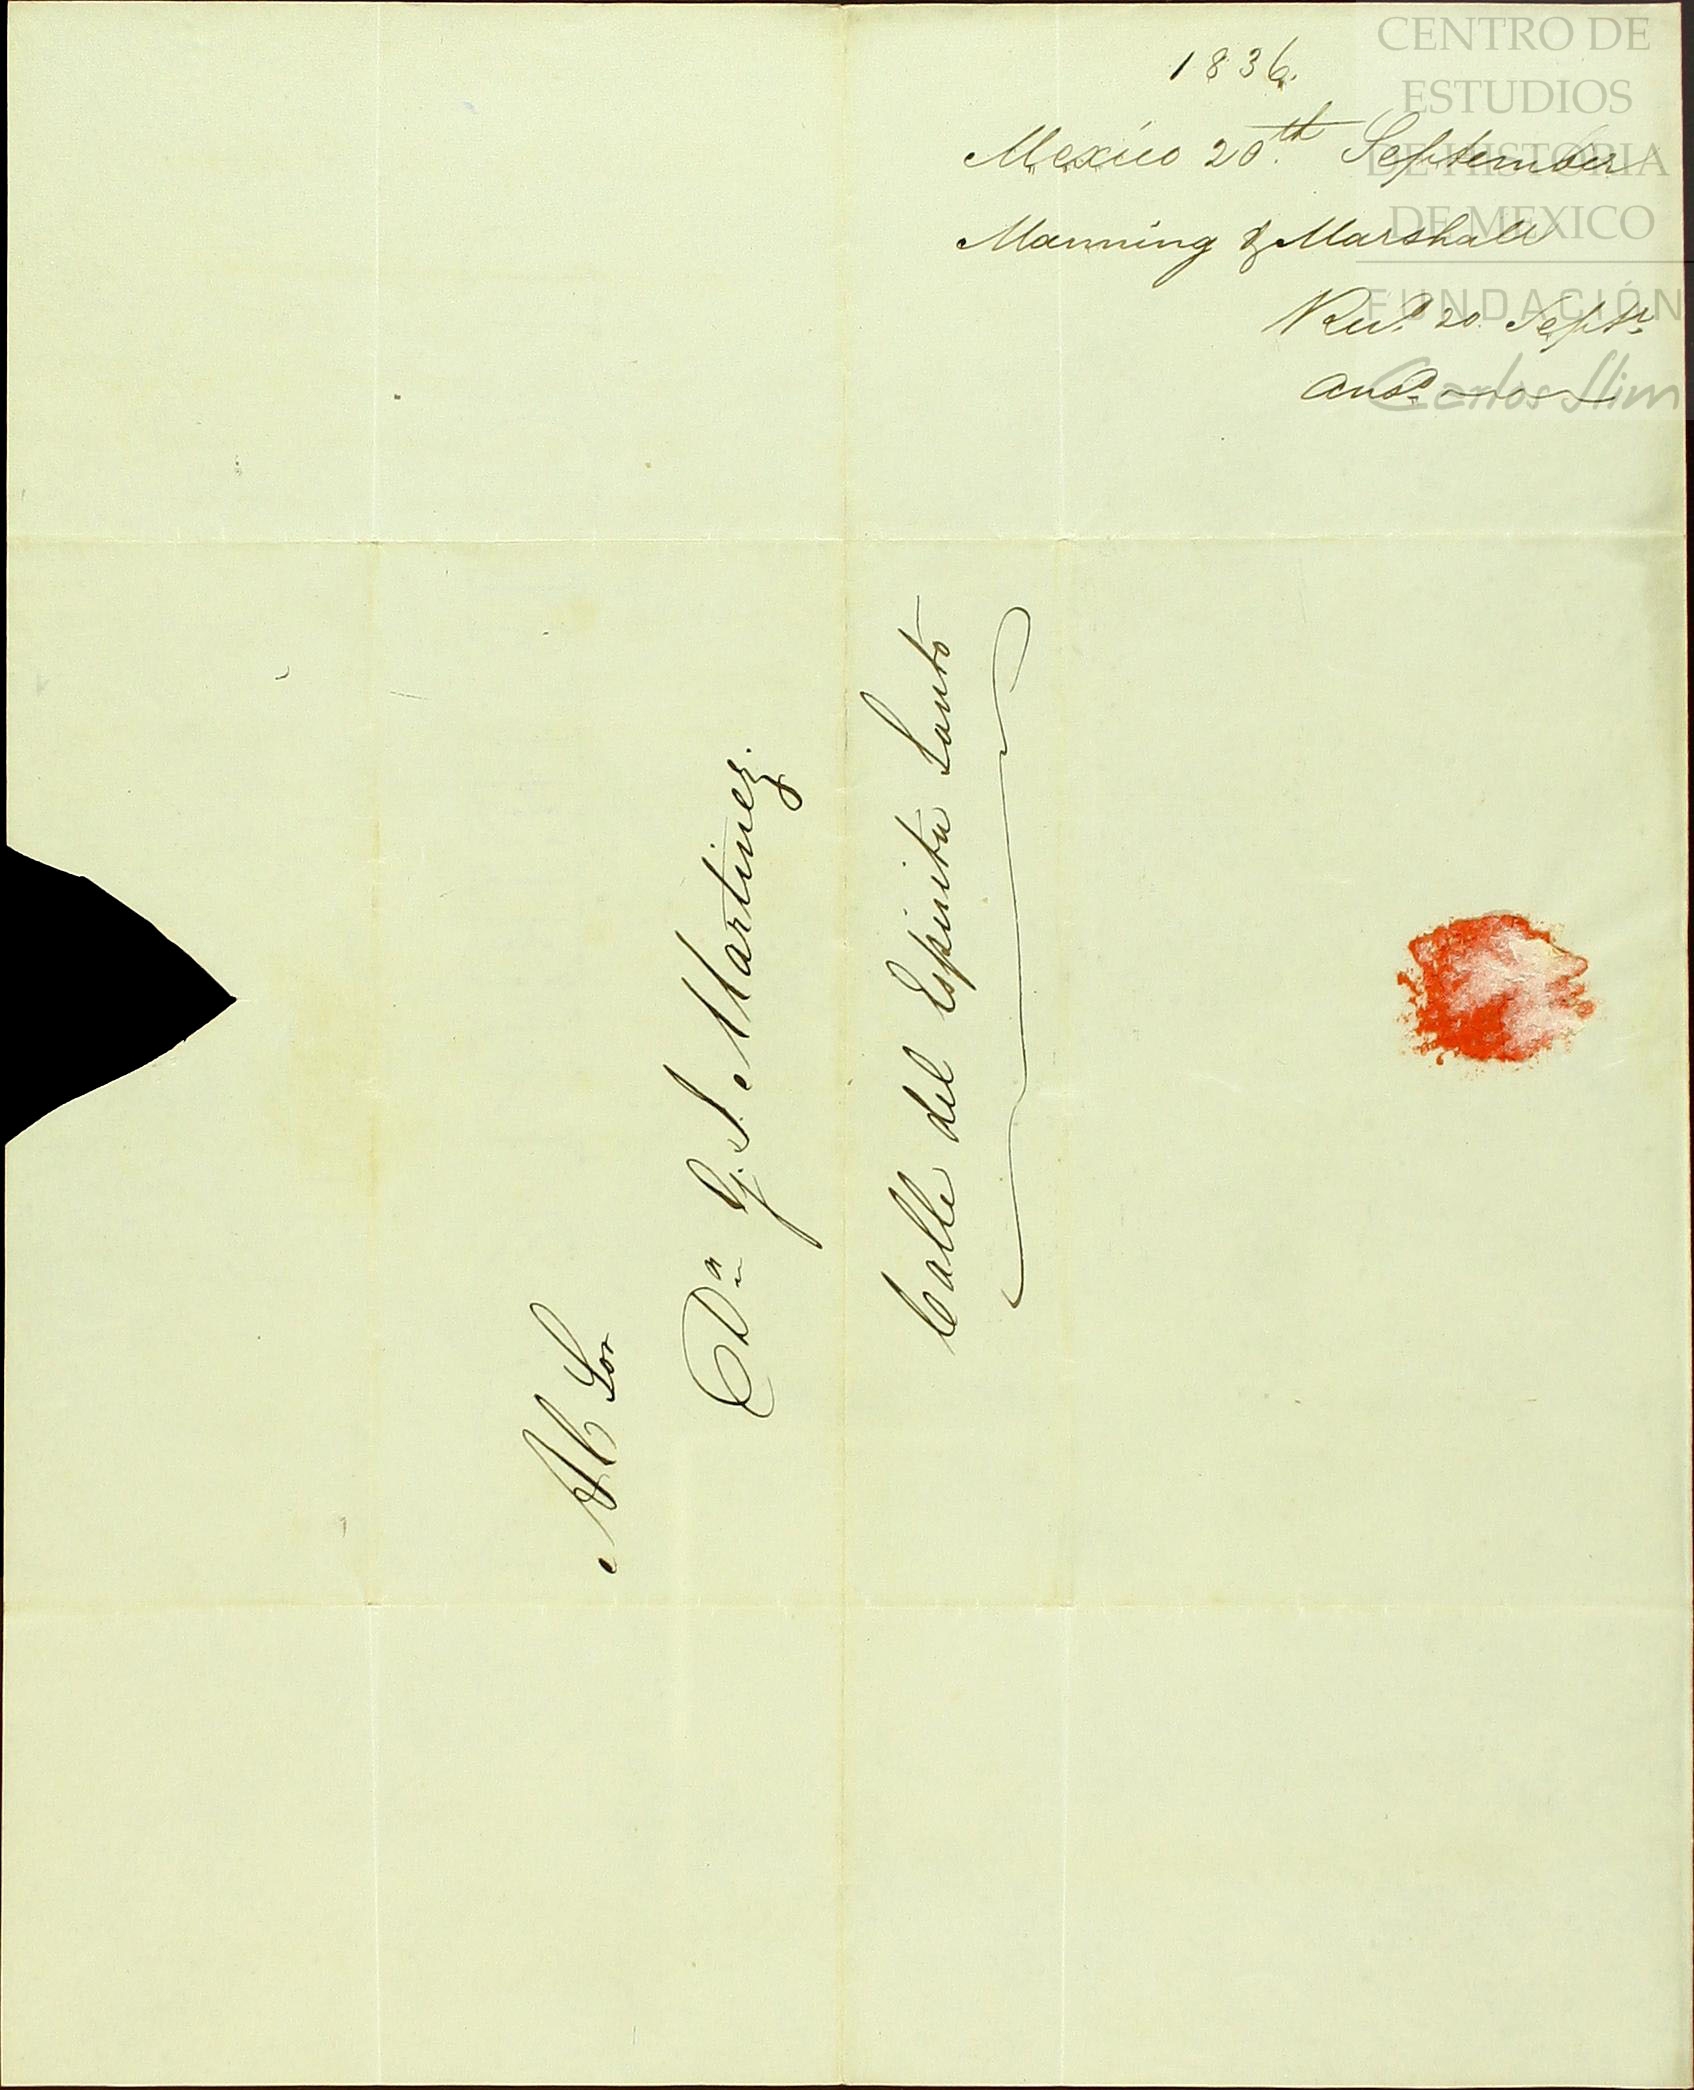 1836.
Mexico 20th September
Manning & Marshall
Recd 20 Septr
ansd
Al Sor
Dn G. J. Martinez.
Calle del Espiritu Santo
CENTRO DE
ESTUDIOS
DE HISTORIA
DE MEXICO
FUNDACIÓN
Carlos Slim